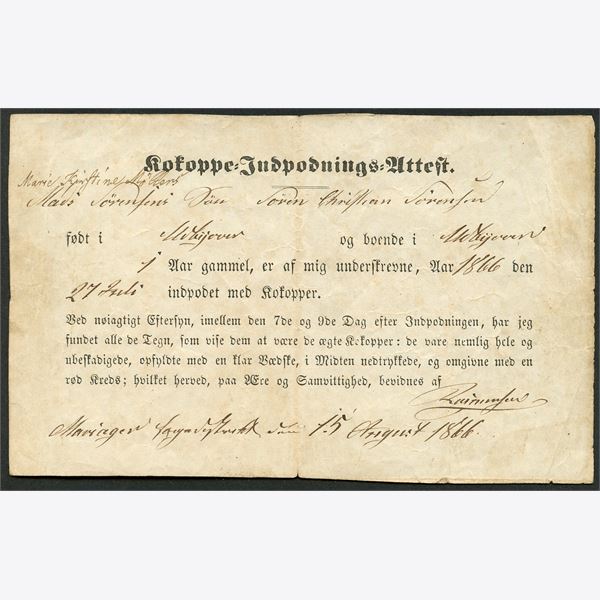 Kokoppe-Indpodnings-Attest.
Marie Kirstine Møllers
Mads Sørensens Søn Søren Christian Sørensen
født i Udbyover og boende i Udbyover
1 Aar gammel, er af mig underskrevne, Aar 1866 den
27 Juli indpodet med Kokopper.
Ved nøiagtigt Eftersyn, imellem den 7de og 9de Dag efter Indpodningen, har jeg
fundet alle de Tegn, som vise dem at være de ægte Kokopper: de vare nemlig hele og
ubeskadigede, opfyldte med en klar Vædske, i Midten nedtrykkede, og omgivne med en
rød Kreds; hvilket herved, paa Ære og Samvittighed, bevidnes af
Mariager Lægedistrikt den 15 August 1866.